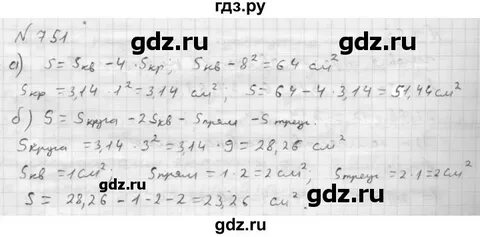 гдз.ру
№ 751
gdz.ru gdz.ru
а) S = Sкв - 4 · Sкр; Sкв - 8² = 64 см²
Sкр = 3,14 · 1² = 3,14 см²; S = 64 - 4 · 3,14 = 51,44 см²
gdz.ru gdz.ru
б) S = Sкруга - 2Sкв - Sпрям - Sтреуг.
Sкруга = 3,14 · 3² = 3,14 · 9 = 28,26 см²
gdz.ru gdz.ru
Sкв = 1 см² Sпрям = 1 · 2 = 2 см²; Sтреуг = 2 · 1 = 2 см²
S = 28,26 - 1 - 2 - 2 = 23,26 см².
gdz.ru gdz.ru